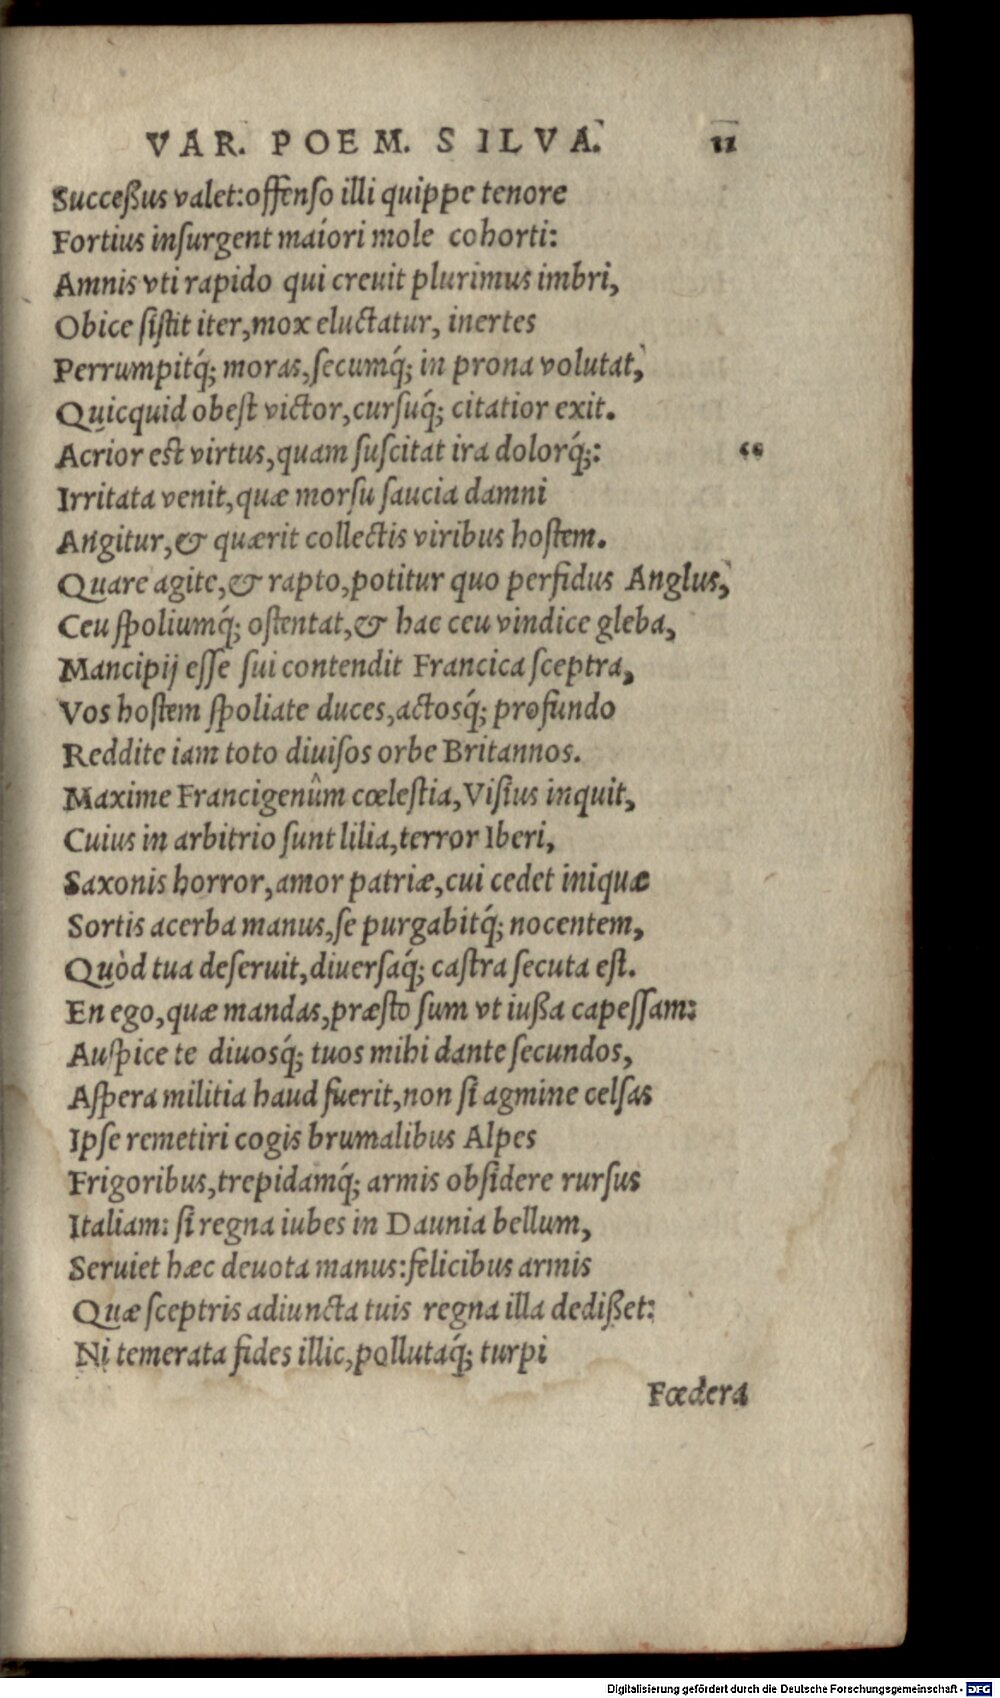 VAR. POEM. SILVA. 11
Succeßus valet:offenſo illi quippe tenore
Fortius inſurgent maiori mole cohorti:
Amnis vti rapido qui creuit plurimus imbri,
Obice ſiſtit iter,mox eluctatur, inertes
Perrumpitq́; moras,ſecumq́; in prona volutat,
Quicquid obeſt victor,curſuq́; citatior exit.
Acrior est virtus,quam ſuſcitat ira dolorq́;: “
Irritata venit,quæ morſu ſaucia damni
Angitur,& quærit collectis viribus hoſtem.
Quare agite,& rapto,potitur quo perfidus Anglus,
Ceu ſpoliumq́; oſtentat,& hac ceu vindice gleba,
Mancipij eſſe ſui contendit Francica ſceptra,
Vos hoſtem ſpoliate duces,actosq́; profundo
Reddite iam toto diuiſos orbe Britannos.
Maxime Francigenûm cœleſtia,Viſius inquit,
Cuius in arbitrio ſunt lilia,terror Iberi,
Saxonis horror,amor patriæ,cui cedet iniquæ
Sortis acerba manus,ſe purgabitq́; nocentem,
Quòd tua deſeruit,diuerſaq́; caſtra ſecuta eſt.
En ego,quæ mandas,præſto ſum vt iußa capeſſam:
Auſpice te diuosq́; tuos mihi dante ſecundos,
Aſpera militia haud fuerit,non ſi agmine celſas
Ipſe remetiri cogis brumalibus Alpes
Frigoribus,trepidamq́; armis obſidere rurſus
Italiam: ſi regna iubes in Daunia bellum,
Seruiet hæc deuota manus:felicibus armis
Quæ ſceptris adiuncta tuis regna illa dedißet:
Ni temerata fides illic,pollutaq́; turpi
Fœdera
Digitalisierung gefördert durch die Deutsche Forschungsgemeinschaft - DFG